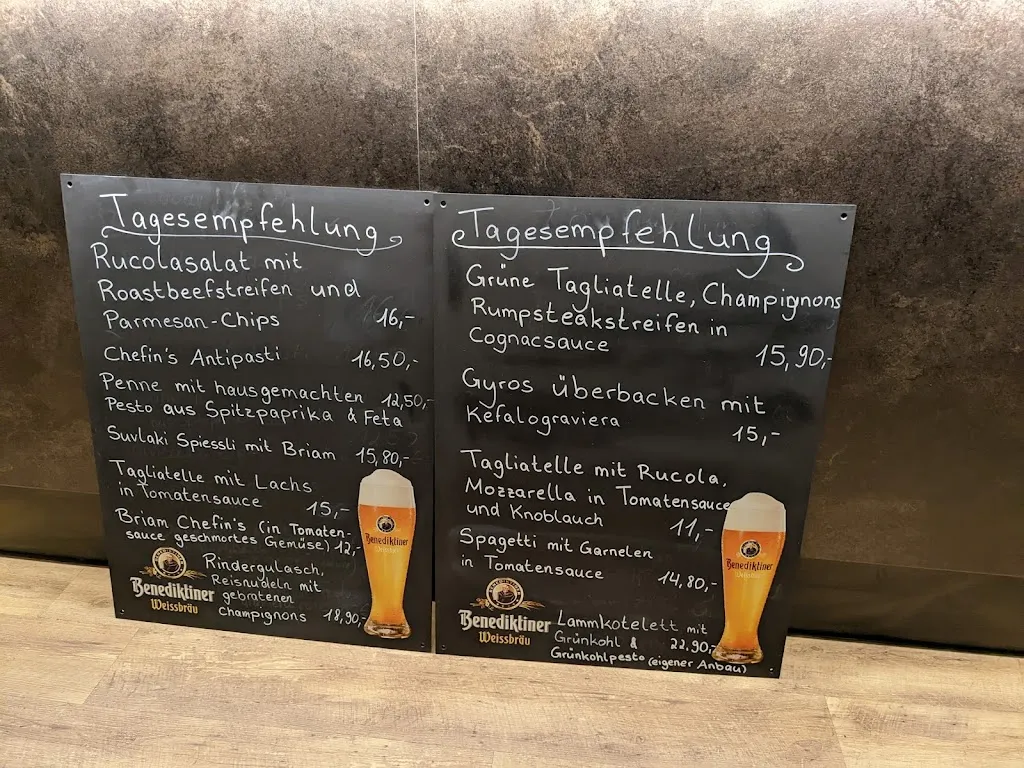 Tagesempfehlung
Rucolasalat mit
Roastbeefstreifen und
Parmesan-Chips 16,-
Chefin's Antipasti 16,50,-
Penne mit hausgemachten 12,50,-
Pesto aus Spitzpaprika & Feta
Suvlaki Spiessli mit Briam 15,80,-
Tagliatelle mit Lachs
in Tomatensauce 15,-
Briam Chefin's (in Tomaten-
sauce geschmortes Gemüse) 12,-
Rindergulasch,
Reisnudeln mit
gebratenen
Champignons 18,90,-
Benediktiner
Weissbräu
Benediktiner
Tagesempfehlung
Grüne Tagliatelle, Champignons
Rumpsteakstreifen in
Cognacsauce 15,90,-
Gyros überbacken mit
Kefalograviera 15,-
Tagliatelle mit Rucola,
Mozzarella in Tomatensauce
und Knoblauch 11,-
Spagetti mit Garnelen
in Tomatensauce 14,80,-
Lammkotelett mit
Grünkohl & 22,90,-
Grünkohlpesto (eigener Anbau)
Benediktiner
Weissbräu
Benediktiner